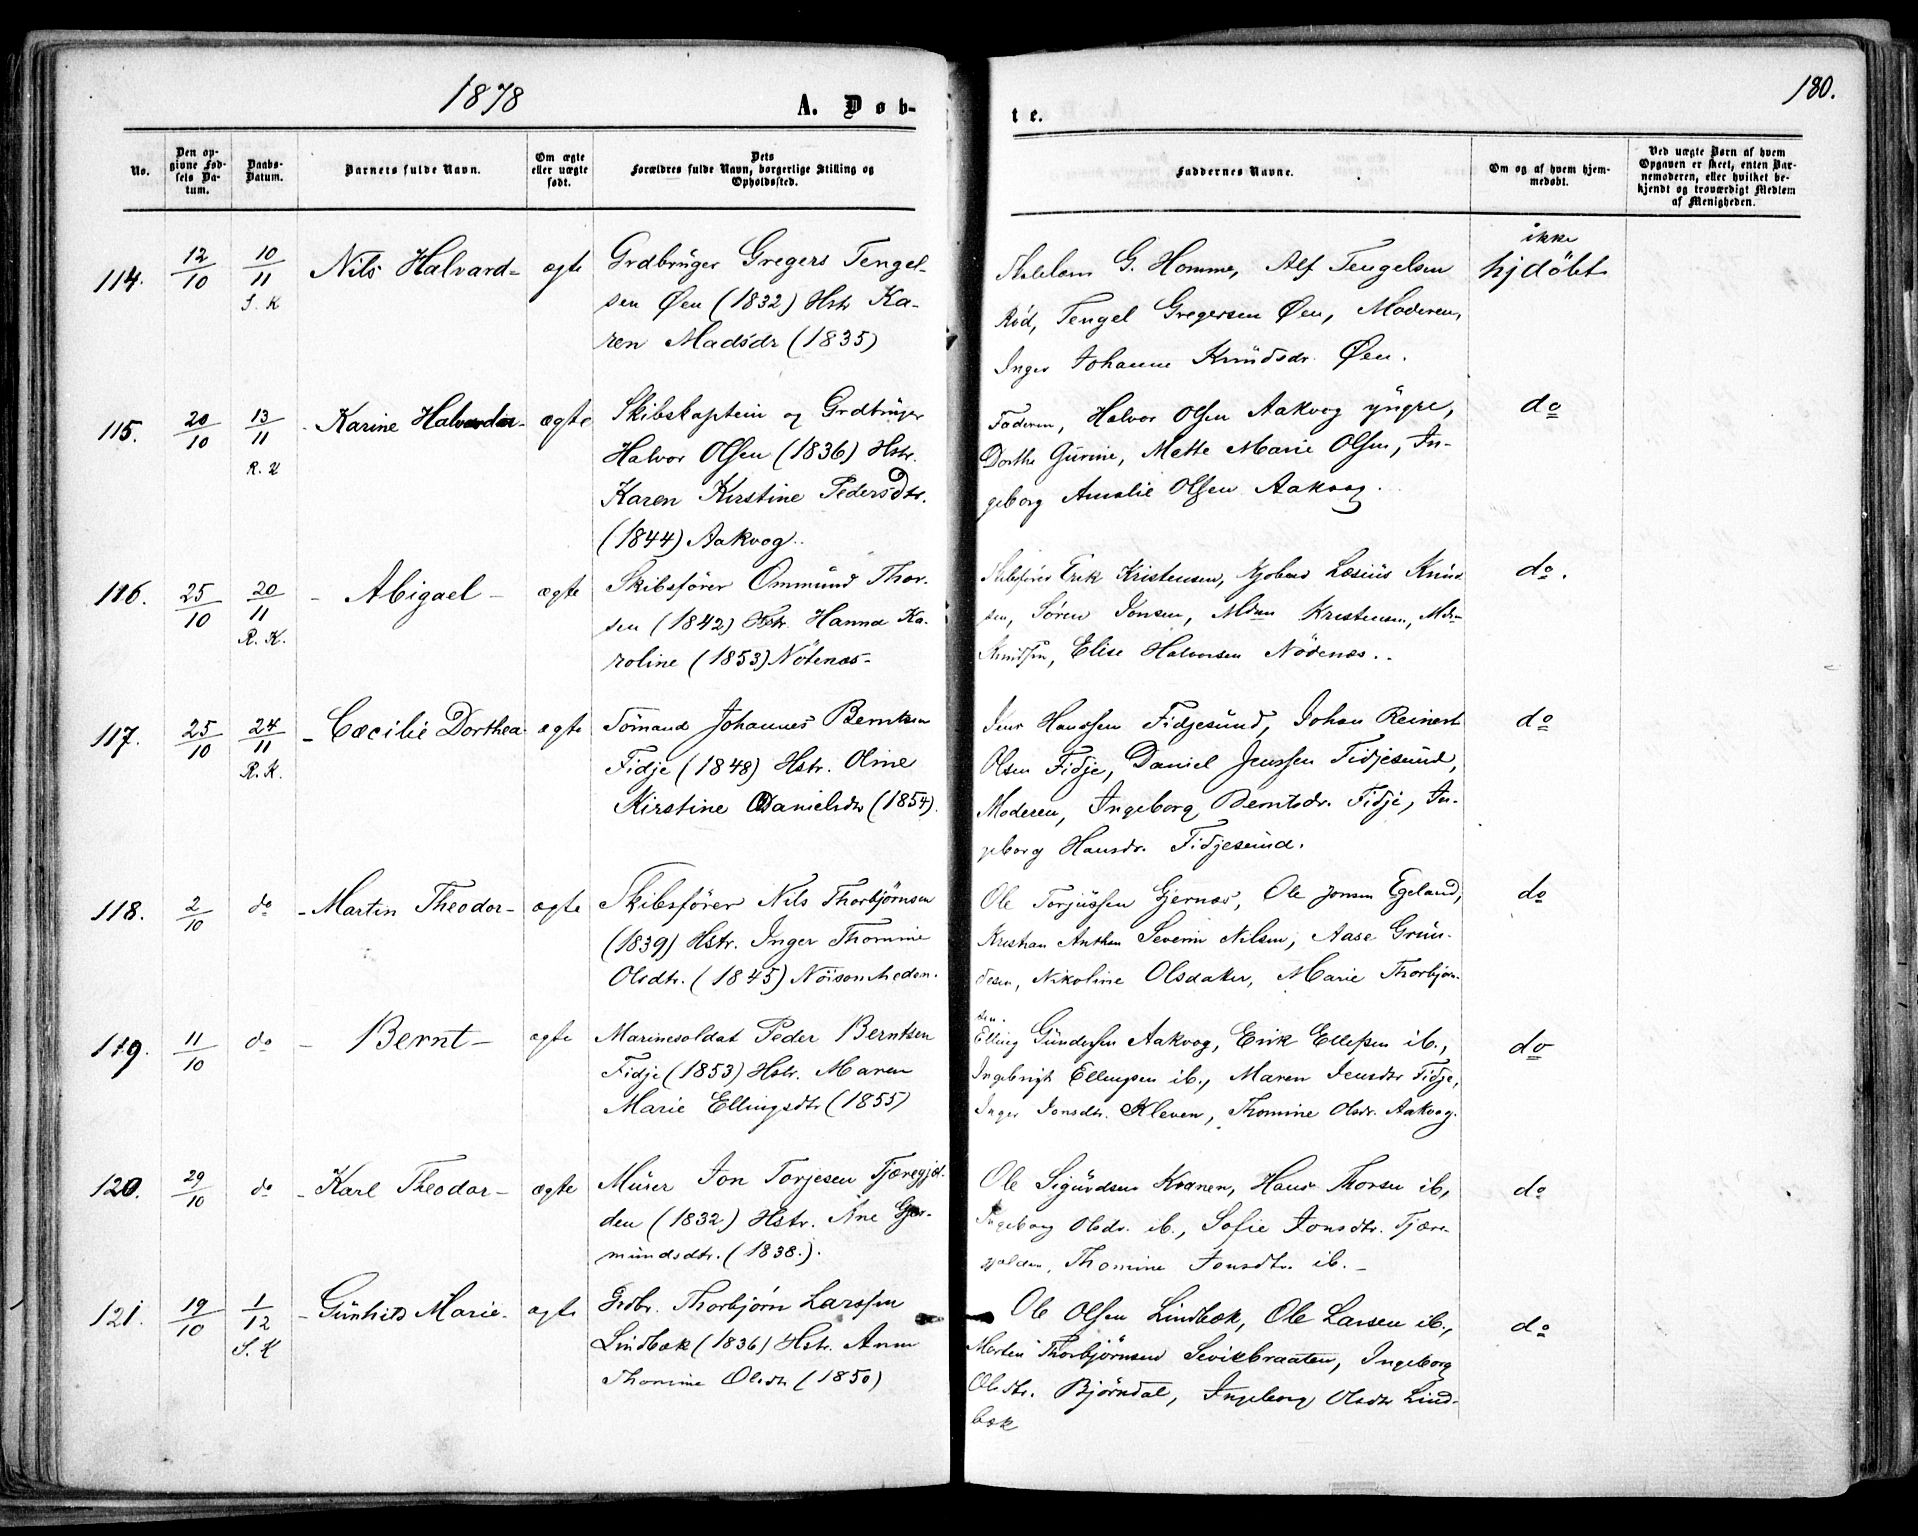 1878
A. Døb-
te.
180.
No.
Den op-
givne Fød-
sels Da-
tum.
Daabs-
Datum.
Barnets fulde Navn.
Om ægte
eller uægte
født.
Dets
Forældres fulde Navn, borgerlige Stilling og
Opholdssted.
Faddernes Navne.
Om og af hvem hjem-
medøbt.
Ved uægte Børn af hvem
Opgaven er skeet, enten Bar-
nemoderen, eller hvilket be-
kjendt og troværdigt Medlem
af Menigheden.
114. 12/10 10/11 S. K Nils Halvard- ægte
Grdbruger Gregers Tengel-
sen Øen (1832) Hstr Ka-
ren Madsdr (1835)
G. Homme, Alf Tengelsen
Rød, Tengel Gregersen Øen, Moderen,
Inger Johanne Knudsdr. Øen.
ikke
hjdøbt
115. 20/10 13/11 - Karine ægte
Skibskaptein og Grdbruger
Halvor Olsen (1836) Hstr.
Karen Kirstine Pedersdtr.
(1844) Aakvog.
Faderen, Halvor Olsen Aakvog yngre,
Dorthe Gurine, Mette Marie Olsen, In-
geborg Amalie Olsen Aakvog.
do
116. 25/10 20/11 R. K. - Abigael - ægte
Skibsfører Ommund Thor-
sen (1842) Hstr. Hanna Ka-
roline (1853) Nötenæs-
Skibsfører Erik Kristensen, Knud-
sen, Søren Jonsen, Mdm Kristensen, Mdm
Knudsen, Elise Halvorsen Nödenæs.
do.
117. 25/10 24/11 R. K. - Cæcilie Dorthea ægte
Sömand Johannes Berntsen
Fidje (1848) Hstr. Oline
Kirstine Danielsdtr (1854).
Jens Hanssen Fidjesund, Johan Reinert
Olsen Fidje, Daniel Jenssen Fidjesund,
Moderen, Ingeborg Berntsdr. Fidje, In-
geborg Hansdr. Fidjesund.
do
118. 2/10 do - Martin Theodor - ægte
Skibsfører Nils Thorbjørnsen
(1839) Hstr. Inger Thomine
Olsdtr. (1845) Nöisomheden.
Ole Torjussen Gjernæs, Ole Jonsen Egeland,
Kristian Severin Nilsen, Aase Grun-
desen, Nikoline Olsdatter, Marie Thorbjørn-
sen.
do
119. 11/10 do - Bernt - ægte
Marinesoldat Peder Berntsen
Fidje (1853) Hstr. Maren
Marie Ellingsdtr (1855)
Elling Gundersen Aakvog, Erik Ellefsen ib.,
Ingebrigt Ellingsen ib., Maren Jensdtr Fidje,
Inger Jonsdtr. Kleven, Thomine Olsdr. Aakvog.
do
120. 29/10 do - Karl Theodor - ægte
Murer Jon Torjesen Tjæregjel-
den (1832) Hstr. Ane Gjer-
mundsdtr. (1838.).
Ole Sigurdsen Kranen, Hans Thorsen ib,
Ingeborg Olsdr. ib., Sofie Jonsdtr. Tjære-
gjelden, Thomine Jonsdtr. ib. -
do
121. 19/10 1/12 S. K - Gunhild Marie - ægte
Grdbr. Thorbjørn Larssen
Lindbæk (1836) Hstr. Anne
Thomine Olsdtr (1850)
Ole Olsen Lindbæk, Ole Larsen ib.,
Martin Thorbjørnsen Sevikbraaten, Ingeborg
Olsdtr. Bjørndal, Ingeborg Olsdtr Lind-
bæk
do